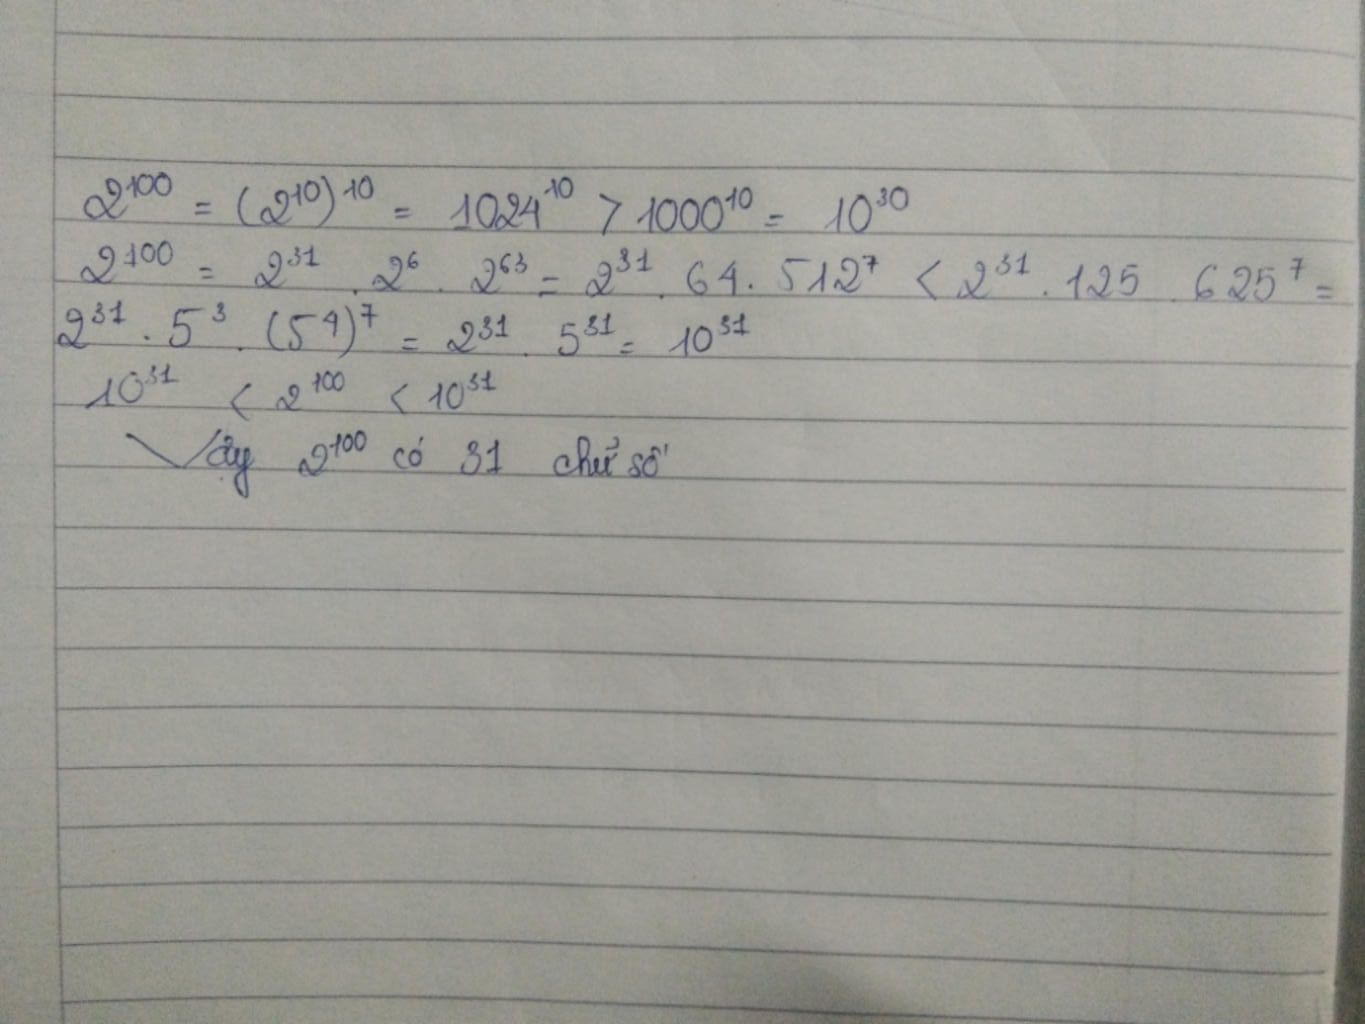 2¹⁰⁰ = (2¹⁰)¹⁰ = 1024¹⁰ > 1000¹⁰ = 10³⁰
2¹⁰⁰ = 2³¹ . 2⁶ . 2⁶³ = 2³¹ . 64 . 512⁷ < 2³¹ . 125 . 625⁷ =
2³¹ . 5³ . (5⁴)⁷ = 2³¹ . 5³¹ = 10³¹
10³¹ < 2¹⁰⁰ < 10³¹
Vậy 2¹⁰⁰ có 31 chữ số